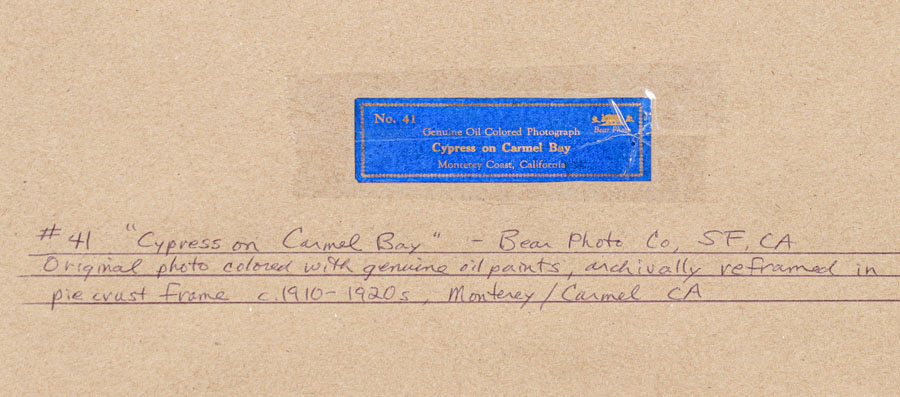 No. 41
Bear Photo
Genuine Oil Colored Photograph
Cypress on Carmel Bay
Monterey Coast, California
#41 "Cypress on Carmel Bay" - Bear Photo Co, SF, CA
Original photo colored with genuine oil paints, archivally reframed in
pie crust frame c.1910-1920s, Monterey/Carmel CA